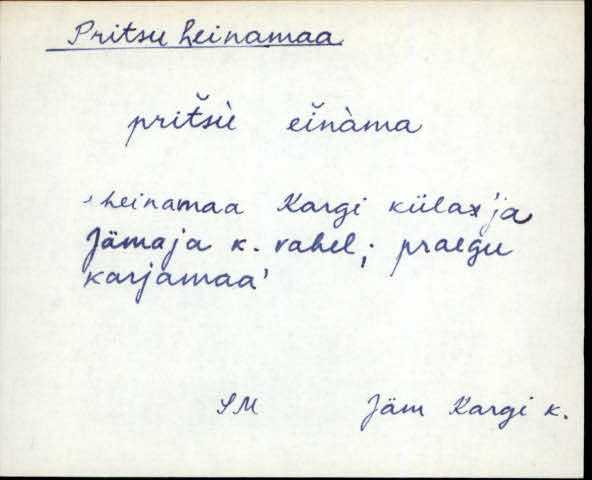 Pritsu heinamaa
pritsù einàma
'heinamaa Kargi külas ja
Jämaja k. vahel; praegu
karjamaa'
SM Jäm Kargi k.